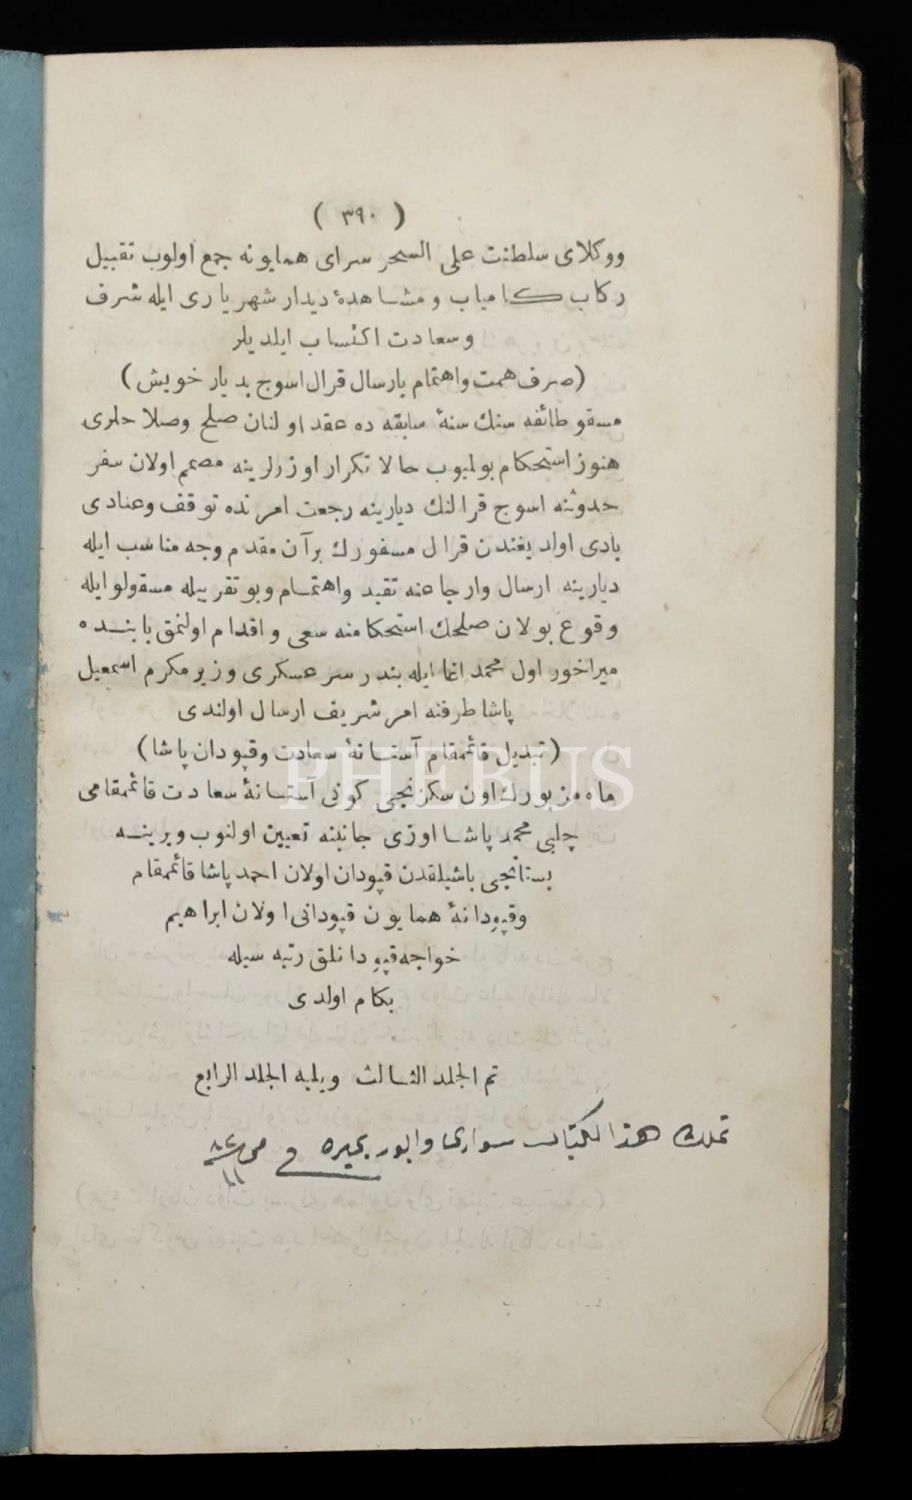 ( ٣٩٠ )
ووكلاى سلطنت على السحر سراى همايونه جمع اولوب تقبيل
ركاب كامياب ومشاهدۀ ديدار شهريارى ايله شرف
وسعادت اكتساب ايلديلر
(صرف همت واهتمام بارسال قرال اسوج بديار خويش)
مسقو طائفه سنك سنۀ سابقه ده عقد اولنان صلح وصلاحلرى
هنوز استحكام بولميوب حالا تكرار اوزرلرينه مصمم اولان سفر
حدوثنه اسوج قرالنك ديارينه رجعت امرنده توقف وعنادى
بادى اولديغندن قرال مسفورك برآن مقدم وجه مناسب ايله
ديارينه ارسال وارجاعنه تقيد واهتمام وبو تقريبله مسقولو ايله
وقوع بولان صلحك استحكامنه سعى واقدام اولنمق بابنده
ميراخور اول محمد اغا ايله بندر سرعسكرى وزير مكرم اسمعيل
پاشا طرفنه امر شريف ارسال اولندى
(تبديل قائمقام آستانۀ سعادت وقپودان پاشا)
ماه مزبورك اون سكزنجى كونى آستانۀ سعادت قائمقامى
چلبى محمد پاشا اوزى جانبنه تعيين اولنوب ويرينه
بستانجى باشيلقدن قپودان اولان احمد پاشا قائمقام
وقپودانۀ همايون قپودانى اولان ابراهيم
خواجه قپودانلق رتبه سيله
بكام اولدى
تم الجلد الثالث ويليه الجلد الرابع
تملك هذا الكتاب سوارئ وابور بحيره فى
PHEBUS